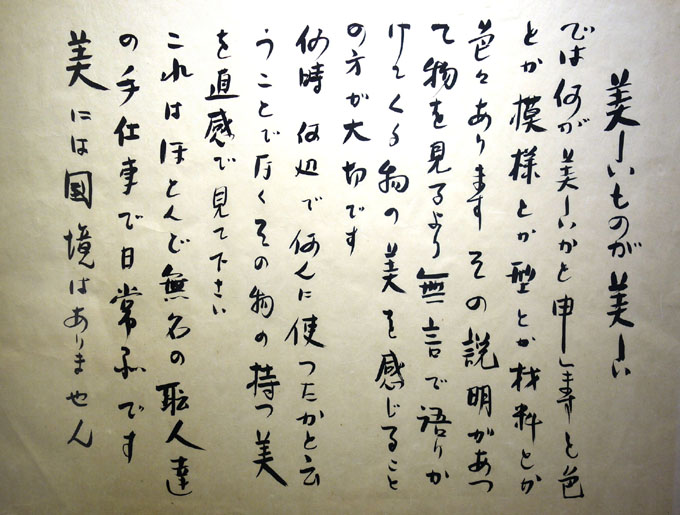 美しいものが美しい
では何が美しいかと申しますと色
とか模様とか型とか材料とか
色々あります その説明があつ
て物を見るより無言で語りか
けてくる物の美を感じること
の方が大切です
何時 何処で何人に使つたかと云
うことでなくその物の持つ美
を直感で見て下さい
これはほとんど無名の職人達
の手仕事で日常品です
美には国境はありません